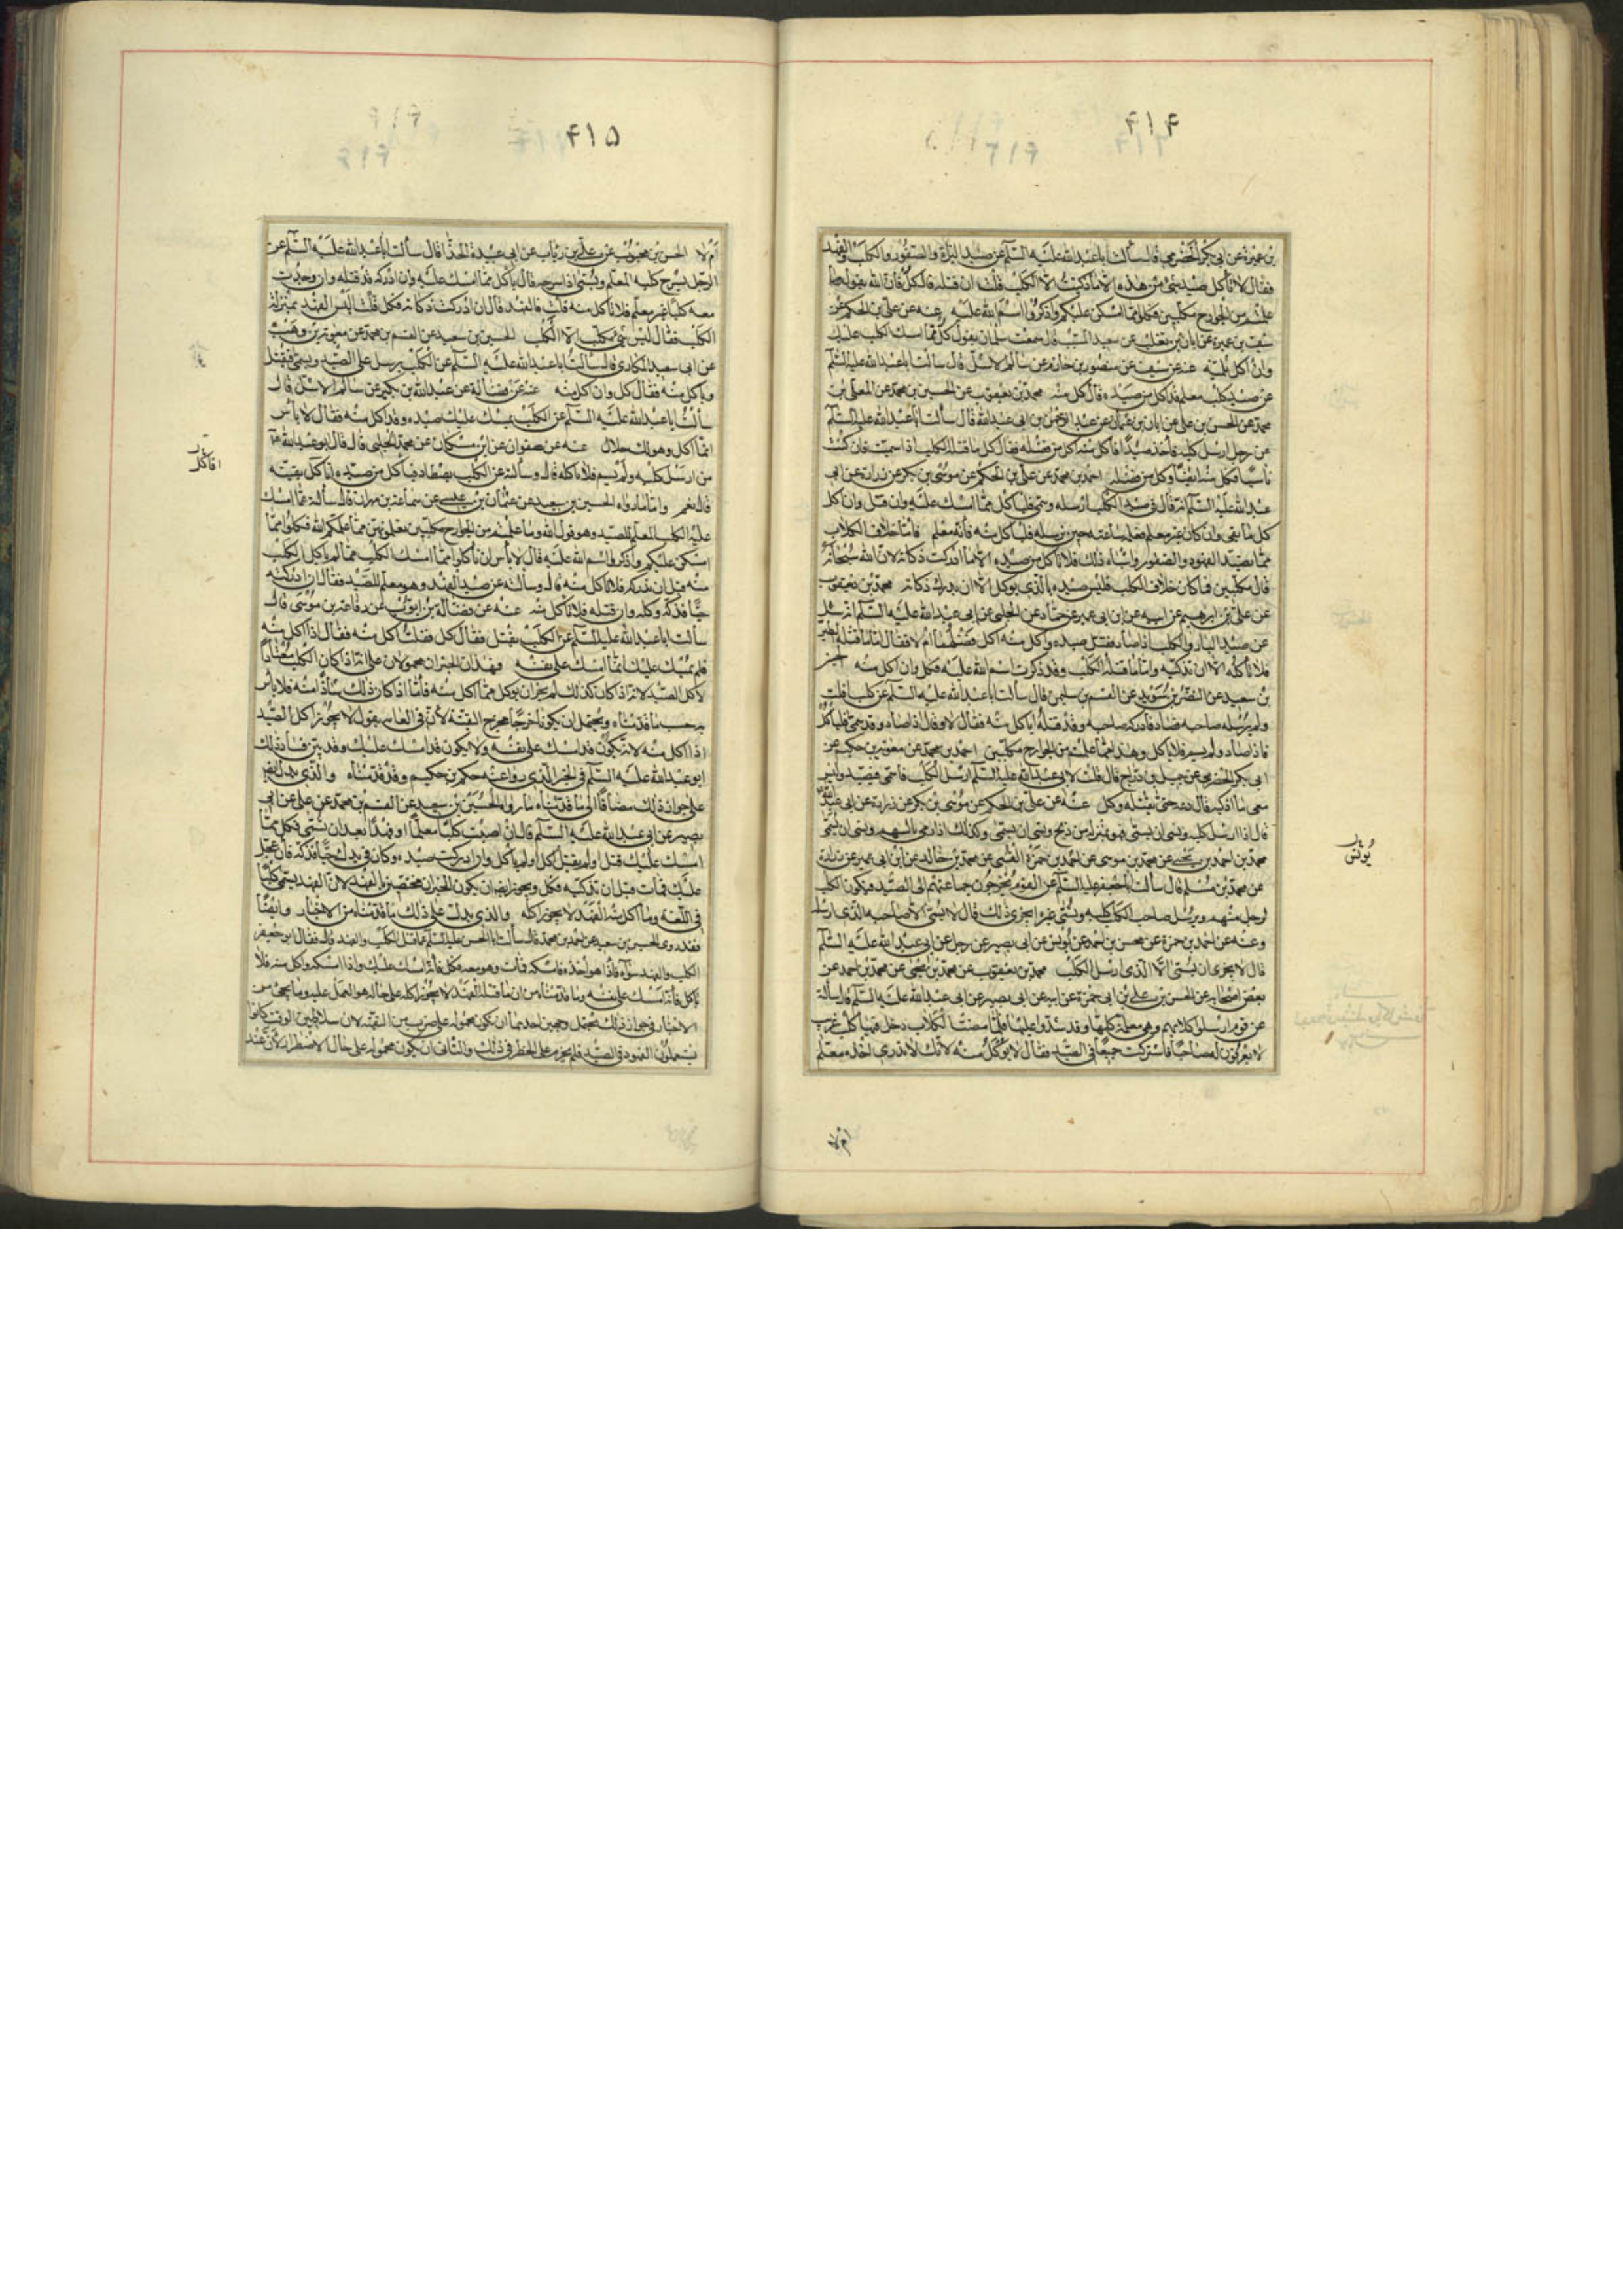 ۴۱۴
بن عميرة عن ابى بكر الحضرمى قال سألت ابا عبد الله عليه السلم عن صيد البزاة والصقور والكلب والفهد
فقال لا تأكل صيد شئ من هذه الا ما ذكيتموه الا الكلب قلت ان قتله قال كل فان الله يقول وما
علمتم من الجوارح مكلبين فكلوا مما امسكن عليكم واذكروا اسم الله عليه عنه عن على بن الحكم عن
سيف بن عميرة عن ابان بن تغلب عن سعيد المسيب قال سمعت سلمان يقول كل مما امسك الكلب عليك
وان اكل ثلثيه عنه عن سيف عن منصور بن حازم عن سالم الاشل قال سألت ابا عبد الله عليه السلم
عن صيد كلب معلم قد اكل من صيده قال كل منه محمد بن يعقوب عن الحسين بن محمد عن المعلى بن
محمد عن الحسن بن على عن ابان بن عثمان عن عبد الرحمن بن ابى عبد الله قال سألت ابا عبد الله عليه السلم
عن رجل ارسل كلبه فاخذ صيدا فاكل منه اكل من فضله فقال كل ما قتله الكلب اذا سميت فان كنت
ناسيا فكل منه ايضا وكل من فضله احمد بن محمد عن على بن الحكم عن موسى بن بكر عن زرارة عن ابى
عبد الله عليه السلم انه قال فى صيد الكلب ارسله وسمى فليأكل مما امسك عليه وان قتل وان اكل
كل ما بقى وان كان غير معلم فعلمه ساعته حين يرسله فليأكل منه فانه معلم فاما خلاف الكلاب
مما يصيد الفهود والصقور واشباه ذلك فلا تأكل من صيده الا ما ادركت ذكاته لان الله سبحانه
قال مكلبين فما كان خلاف الكلب فليس صيده بالذى يوكل الا ان يدرك ذكاته محمد بن يعقوب
عن على بن ابرهيم عن ابيه عن ابن ابى عمير عن حماد عن الحلبى عن ابى عبد الله عليه السلم انه سئل
عن صيد البازى والكلب اذا صاد فقتل صيده واكل منه اكل فضلهما ام لا فقال اما ما قتله الطير
فلا تأكله الا ان تذكيه واما ما قتله الكلب وقد ذكرت اسم الله عليه فكل وان اكل منه الحسين
بن سعيد عن النضر بن سويد عن القسم بن سليمن قال سألت ابا عبد الله عليه السلم عن كلب افلت
ولم يرسله صاحبه فصاد فادركه صاحبه وقد قتله اياكل منه فقال لا وقال اذا صاد وقد سمى فليأكل
فاذا صاد ولم يسم فلا يأكل وهذا مما علمتم من الجوارح مكلبين احمد بن محمد عن معوية بن حكيم عن
ابى بكر الحضرمى عن جميل بن دراج قال قلت لابى عبد الله عليه السلم ارسل الكلب فاسمى فيصيد وليس
معى ما اذكيه قال دعه حتى يقتله وكل عنه عن على بن الحكم عن موسى بن بكر عن زرارة عن ابى عبد الله
قال اذا ارسل كلبه ونسى ان يسمى فهو بمنزلة من ذبح ونسى ان يسمى وكذلك اذا رمى بالسهم ونسى ان يسمى
محمد بن احمد بن يحيى عن محمد بن موسى عن احمد بن حمزة القمى عن محمد بن خالد عن ابن ابى عمير عن زرارة
عن محمد بن مسلم قال سألت ابا جعفر عليه السلم عن القوم يخرجون جماعتهم الى الصيد فيكون الكلب
لرجل منهم ويرسل صاحب الكلب كلبه ويسمى غيره ايجزى ذلك قال لا يسمى الا صاحبه الذى ارسله
وعنه عن احمد بن حمزة عن محسن بن احمد عن يونس عن ابى بصير عن رجل عن ابى عبد الله عليه السلم
قال لا يجزى ان يسمى الا الذى ارسل الكلب محمد بن يعقوب عن محمد بن يحيى عن محمد بن احمد عن
بعض اصحابه عن الحسن بن على بن ابى حمزة عن ابيه عن ابى بصير عن ابى عبد الله عليه السلم قال سألته
عن قوم ارسلوا كلابهم وهى معلمة كلها وقد سموا عليها فلما مضت الكلاب دخل فيها كلب غريب
لا يعرفون له صاحبا فاشتركت جميعا فى الصيد فقال لا يوكل منه لانك لا تدرى اخذه معلم
يونس
ام لا
۴۱۵
ام لا الحسن بن محبوب عن على بن رئاب عن ابى عبيدة الحذا قال سألت ابا عبد الله عليه السلم عن
الرجل يسرح كلبه المعلم ويسمى اذا سرحه قال يأكل مما امسك عليه وان ادركه قد قتله وان وجدت
معه كلبا غير معلم فلا تأكل منه قلت فالفهد قال ان ادركت ذكاته فكل قلت اليس الفهد بمنزلة
الكلب فقال ليس شئ مكلب الا الكلب الحسين بن سعيد عن القسم بن محمد عن معوية بن وهب
عن ابى سعيد المكارى قال سألت ابا عبد الله عليه السلم عن الكلب يرسل على الصيد ويسمى فيقتل
وياكل منه فقال كل وان اكل منه عنه عن فضالة عن عبد الله بن بكير عن سالم الاشل قال
سألت ابا عبد الله عليه السلم عن الكلب يمسك عليك صيده وقد اكل منه فقال لا بأس
انما اكل وهو لك حلال عنه عن صفوان عن ابن مسكان عن محمد الحلبى قال قال ابو عبد الله ع
من ارسل كلبه ولم يسم فلا يأكله قال وسألته عن الكلب يصطاد فيأكل من صيده اناكل بقيته
قال نعم واما ما رواه الحسين بن سعيد عن عثمان بن عيسى عن سماعة بن مهران قال سألته عما امسك
عليه الكلب المعلم للصيد وهو قول الله وما علمتم من الجوارح مكلبين تعلمونهن مما علمكم الله فكلوا مما
امسكن عليكم واذكروا اسم الله عليه قال لا بأس ان تأكلوا مما امسك الكلب مما لم ياكل الكلب
منه قبل ان تدركه فلا تاكل منه قال وسألته عن صيد الفهد وهو معلم للصيد فقال ان ادركته
حيا فذكه وكله وان قتله فلا تأكل منه عنه عن فضالة بن ايوب عن رفاعة بن موسى قال
سألت ابا عبد الله عليه السلم عن الكلب يقتل فقال كل فقلت اكل منه فقال اذا اكل منه
فلم يمسك عليك انما امسك على نفسه فهذان الخبران محمولان على انه اذا كان الكلب معتادا
لاكل الصيد لانه اذا كان كذلك لم يجز ان يوكل مما اكل منه فاما اذا كان ذلك شاذا منه فلا بأس
به حسب ما قدمناه ويحتمل ان يكونا خرجا مخرج التقية لان فى العامة من يقول لا يجوز اكل الصيد
اذا اكل منه لانه يكون قد امسك على نفسه ولا يكون قد امسك عليك وقد بين فساد ذلك
ابو عبد الله عليه السلم فى الخبر الذى رواه عنه حكم بن حكيم وقد قدمناه والذى يدل ايضا
على جواز ذلك مضافا الى ما قدمناه ما رواه الحسين بن سعيد عن القسم بن محمد عن على عن ابى
بصير عن ابى عبد الله عليه السلم قال ان اصبت كلبا معلما او فهدا بعد ان تسمى فكل مما
امسك عليك قتل او لم يقتل اكل او لم ياكل وان ادركت صيده وكان فى يدك حيا فذكه فان عجل
عليك فمات قبل ان تذكيه فكل ويجوز ايضا ان يكون الخبران مختصين بالفهد لان الفهد يسمى كلبا
فى اللغة وما اكل منه الفهد لا يجوز اكله والذى يدل على ذلك ما قدمناه من الاخبار وايضا
فقد روى الحسين بن سعيد عن احمد بن محمد قال سألت ابا الحسن عليه السلم عما قتل الكلب والفهد قال فقال ابو جعفر
الكلب والفهد سواء فاذا هو اخذه فامسكه فمات وهو معه فكل فانه امسك عليك واذا امسكه واكل منه فلا
تاكل فانه امسك على نفسه وما قدمناه من ان ما قتله الفهد لا يجوز اكله على حاله هو العمل عليه وما يجئ من
الاخبار فى جواز ذلك تحتمل وجهين احدهما ان يكون محمولة على ضرب من التقية لان سلاطين الوقت كانوا
يستعملون الفهود فى الصيد فلم يجز معه الحظر فى ذلك والثانى ان يكون محمولة على حال الاضطرار لان عند
افاكل